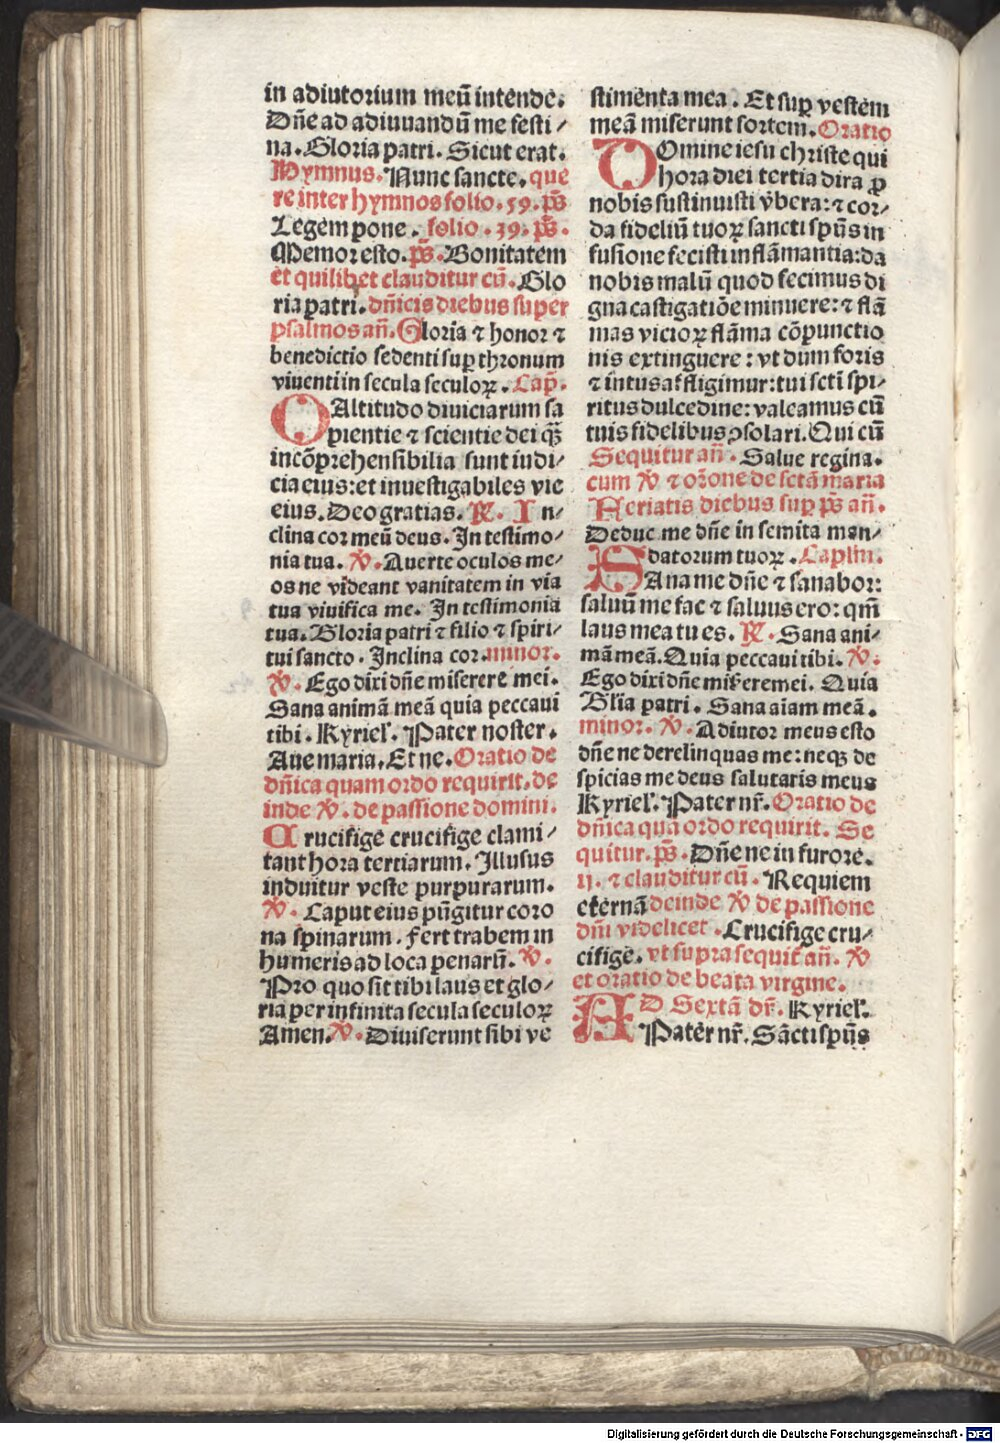 in adiutorium meū intende.
Dn̄e ad adiuuandū me festi/
na. Gloria patri. Sicut erat.
Hymnus. Nunc sancte. que
re inter hymnos folio. 59. ps̄
Legem pone. folio. 39. ps̄.
Memor esto. ps̄. Bonitatem
et quilibet clauditur cū. Glo
ria patri. dn̄icis diebus super
psalmos an̄. Gloria ⁊ honor ⁊
benedictio sedenti suꝑ thronum
viuenti in secula seculoꝝ. Cap̄.
O Altitudo diuiciarum sa
pientie ⁊ scientie dei qꝫ̄
incōprehensibilia sunt iudi/
cia eius: et inuestigabiles vie
eius. Deo gratias. ℟. In/
clina cor meū deus. In testimo/
nia tua. ℣. Auerte oculos me/
os ne videant vanitatem in via
tua viuifica me. In testimonia
tua. Gloria patri ⁊ filio ⁊ spiri/
tui sancto. Inclina cor. minor.
℣. Ego dixi dn̄e miserere mei.
Sana animā meā quia peccaui
tibi. Kyriel'. Pater noster.
Aue maria. Et ne. Oratio de
dn̄ica quam ordo requirit. de
inde ℣. de passione domini.
Crucifige crucifige clami/
tant hora tertiarum. Illusus
induitur veste purpurarum.
℣. Caput eius pūgitur coro
na spinarum. fert trabem in
humeris ad loca penarū. ℣.
Pro quo sit tibi laus et glo/
ria per infinita secula seculoꝝ
Amen. ℣. Diuiserunt sibi ve
stimenta mea. Et suꝑ vestem
meā miserunt sortem. Oratio
DOmine iesu christe qui
hora diei tertia dira ꝓ
nobis sustinuisti v̄bera: ⁊ cor/
da fideliū tuoꝝ sancti spūs in
fusione fecisti inflāmantia: da
nobis malū quod fecimus di
gna castigatiōe minuere: ⁊ flā
mas vicioꝝ flāma cōpunctio
nis extinguere: vt dum foris
⁊ intus affligimur: tui scti spi/
ritus dulcedine: valeamus cū
tuis fidelibus ꝯsolari. Qui cū
Sequitur an̄. Salue regina.
cum ℣ ⁊ orōne de sctā maria
Feriatis diebus suꝑ ps̄ an̄.
Deduc me dn̄e in semita man/
datorum tuoꝝ. Caplm̄.
SAna me dn̄e ⁊ sanabor:
saluū me fac ⁊ saluus ero: qm̄
laus mea tu es. ℟. Sana ani/
mā meā. Quia peccaui tibi. ℣.
Ego dixi dn̄e mis̄ere mei. Quia
Gl'ia patri. Sana aiam meā.
minor. ℣. Adiutor meus esto
dn̄e ne derelinquas me: neqꝫ de
spicias me deus salutaris meus
Kyriel'. Pater nr̄. Oratio de
dn̄ica quā ordo requirit. Se
quitur. ps̄. Dn̄e ne in furore.
II. ⁊ clauditur cū. Requiem
eternā deinde ℣ de passione
dn̄i videlicet. Crucifige cru/
cifige. vt supra sequit̄ an̄. ℣
et oratio de beata virgine.
AD Sextā dr̄. Kyriel'.
Pater nr̄. Sācti spūs
Digitalisierung gefördert durch die Deutsche Forschungsgemeinschaft - DFG